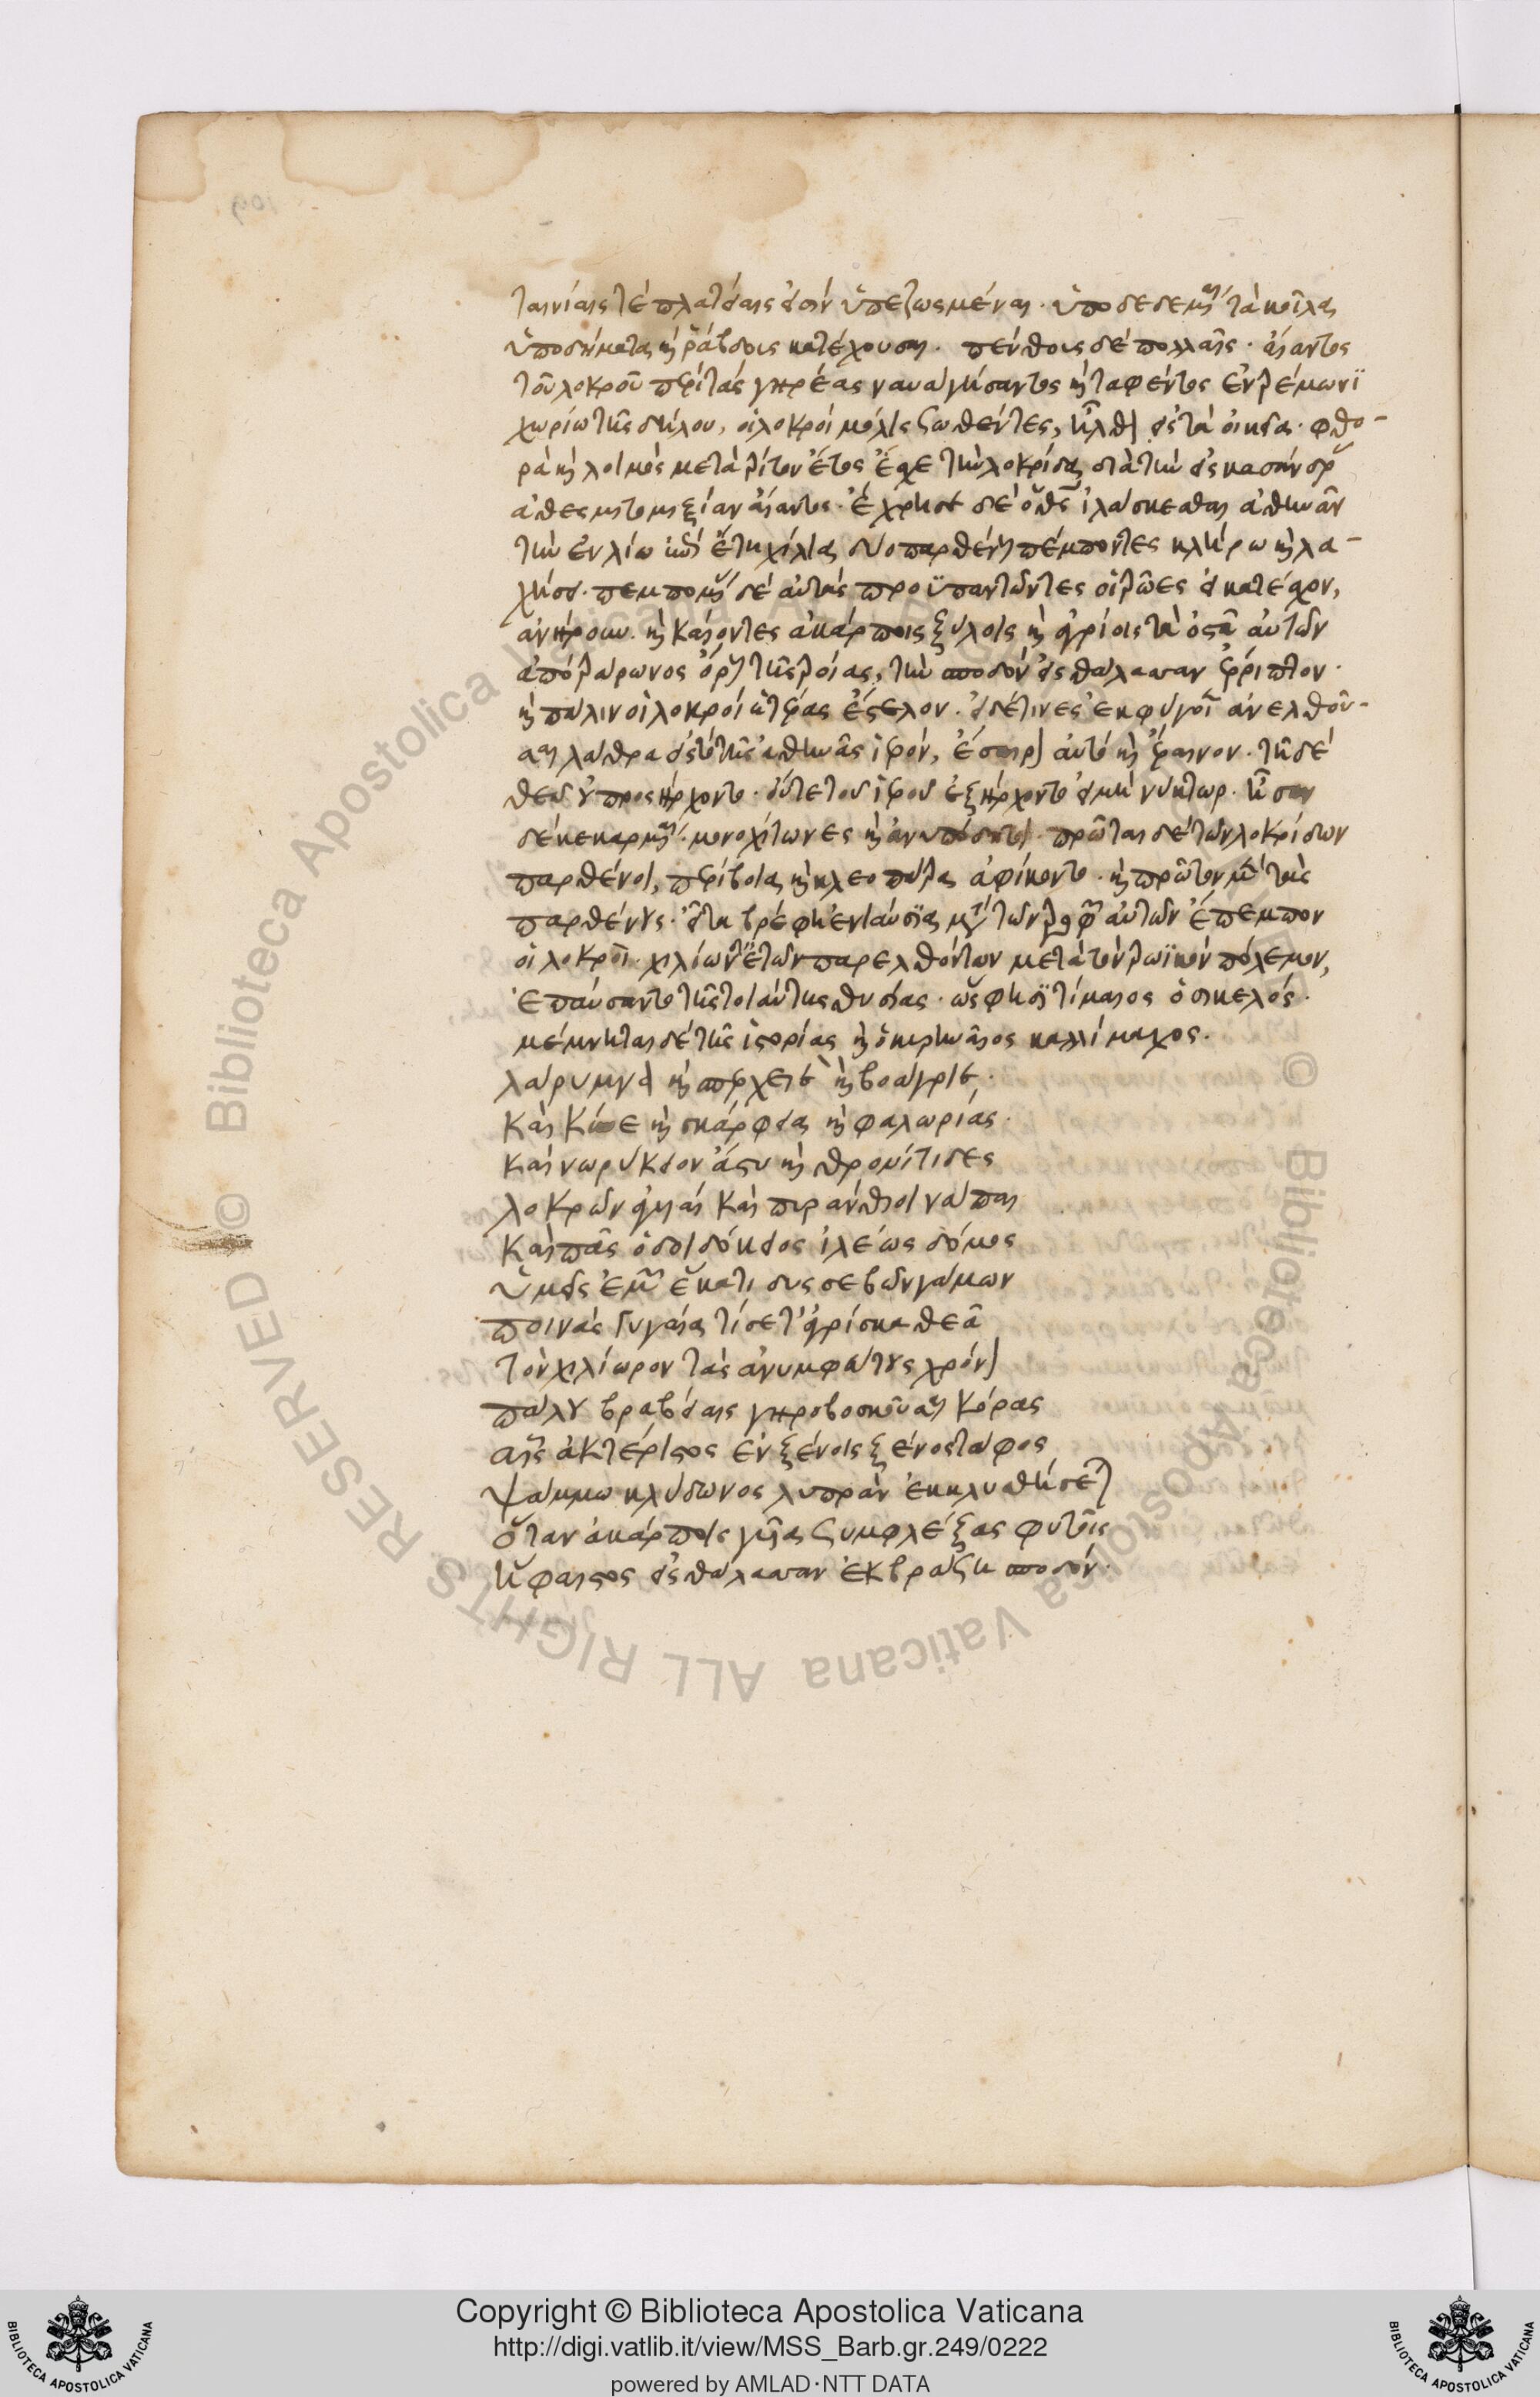 ταινίαις τὲ πλατείαις εἰσὶν ὑπεζωσμέναι. ὑποδεδεμέναι τὰ κοῖλα
ὑποδήματα, καὶ ῥάβδοις κατέχουσαι. πένθοις δὲ πολλαῖς. αἴαντος
τοῦ λοκροῦ περὶ τὰς γηρέας ναυαγήσαντος καὶ ταφέντος ἐν τρέμωνϊ
χωρίω τῆς δήλου, οἱ λοκροὶ μόλις σωθέντες, ἦλθον εἰς τὰ οἰκεῖα. φθο-
ρὰ καὶ λοιμὸς μετὰ τρίτον ἔτος ἔσχε τὴν λοκρίδα, διὰ τὴν εἰς κασάνδραν
ἀθεσμιτομιξίαν αἴαντος. ἔχρησε δὲ ὁ θεὸς ἱλάσκεσθαι ἀθηνᾶν
τὴν ἐν ἰλίω ἐπὶ ἔτη χίλια, δύο παρθένους πέμποντες κλήρω καὶ λα-
χήσει. πεμπομένας δὲ αὐτὰς προϋπαντῶντες οἱ τρῶες εἰ κατέσχον,
ἀνήρουν. καὶ καίοντες ἀκάρποις ξύλοις καὶ ἀγρίοις τὰ ὀστᾶ αὐτῶν
ἀπὸ τράρωνος ὄρους τῆς τροίας, τὴν σποδὸν εἰς θάλασσαν ἔρριπτον.
καὶ πάλιν οἱ λοκροὶ ἑτέρας ἔστελον. εἰ δέ τινες ἐκφύγοιεν ἀνελθοῦ-
σαι λάθρα εἰς τὸ τῆς ἀθηνᾶς ἱερόν, ἔσαιρον αὐτὸ καὶ ἔραινον. τῆ δὲ
θεῶ οὐ προσήρχοντο. οὔτε τοῦ ἱεροῦ ἐξήρχοντο εἰ μὴ νύκτωρ. ἦσαν
δὲ κεκαρμέναι. μονοχίτωνες καὶ ἀνυπόδητοι. πρῶται δὲ τῶν λοκρίδων
παρθένοι, περίβοια καὶ κλεοπάτρα ἀφίκοντο. καὶ πρῶτον μὲν τὰς
παρθένους. εἶτα βρέφη ἐνιαύσϊα μετὰ τῶν τροφῶν αὐτῶν ἔπεμπον
οἱ λοκροί. χιλίων δ' ἐτῶν παρελθόντων μετὰ τὸν τρωϊκὸν πόλεμον,
ἐπαύσαντο τῆς τοιαύτης θυσίας. ὥς φησϊ τίμαιος ὁ σικελός.
μέμνηται δὲ τῆς ἱστορίας καὶ ὁ κυρηναῖος καλλίμαχος.
λάρυμνα καὶ σπερχειὲ καὶ βοάγριε.
Καὶ Κύνε καὶ σκάρφεια καὶ φαλωριάς.
καὶ ναρύκειον ἄστυ καὶ θρονίτιδες
λοκρῶν ἀγυιαί καὶ πυρανθιοι νάπαι
καὶ πᾶς ὁδοιδόκειος ἰλέως δόμος
ὑμεῖς ἐμῶν ἕκατι δυσσεβῶν γάμων
ποινὰς Γυγαία τίσετ' ἀγρίσκα θεᾶ
τὸν χιλίωρον τὰς ἀνυμφεύτους χρόνον
πάλου βραβείαις γηροβοσκοῦσαι κόρας
αἷς ἀκτέριστος ἐν ξένοις ξένος τάφος
ψάμμω κλύδωνος λυπρὰν ἐκκλυσθήσεται
ὅταν ἀκάρποις γυῖα συμφλέξας φυτοῖς
ἥφαιστος εἰς θάλασσαν ἐκβράζη σποδόν.
109
Copyright © Biblioteca Apostolica Vaticana
http://digi.vatlib.it/view/MSS_Barb.gr.249/0222
powered by AMLAD·NTT DATA
BIBLIOTECA APOSTOLICA VATICANA
BIBLIOTECA APOSTOLICA VATICANA
© Biblioteca Apostolica Vaticana ALL RIGHTS RESERVED